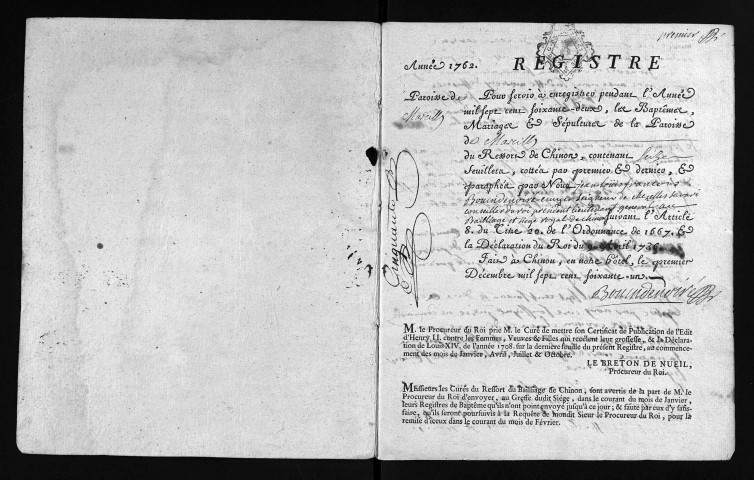 premier
Année 1762. REGISTRE
Paroisse de
Marcilly
Pour servir à enregistrer pendant l'Année
mil sept cent soixante-deux, les Baptêmes,
Mariages & Sépultures de la Paroisse
de Marcilly
du Ressort de Chinon, contenant seize
feuillets, cottés par premier & dernier, &
paraphés par Nous jean louis francois
Bouindenoire ecuyer seigneur de chezelles
conseiller du roi president lieutenant general au
Bailliage et siege royal de chinon suivant l'Article
8. du Titre 20. de l'Ordonnance de 1667. &
la Déclaration du Roi du 9 Avril 1736.
Fait à Chinon, en notre hôtel, le premier
Décembre mil sept cent soixante-un.
Cinquante
M. le Procureur du Roi prie M. le Curé de mettre son Certificat de Publication de l'Edit
d'Henry II. contre les femmes, Veuves & Filles qui recèlent leur grossesse, & la Déclara-
ration de Louis XIV. de l'année 1708. sur la derniere feuille du présent Registre, au commence-
ment des mois de Janvier, Avril, Juillet & Octobre.
LE BRETON DE NUEIL,
Procureur du Roi.
MEssieurs les Curés du Ressort du Bailliage de Chinon, sont avertis de la part de M. le
Procureur du Roi d'envoyer, au Greffe dudit Siége, dans le courant du mois de Janvier,
leurs Registres de Baptême qu'ils n'ont point envoyé jusqu'à ce jour; & faute par eux d'y satis-
faire, qu'ils seront poursuivis à la Requête de mondit Sieur le Procureur du Roi, pour la
remise d'iceux dans le courant du mois de Février.